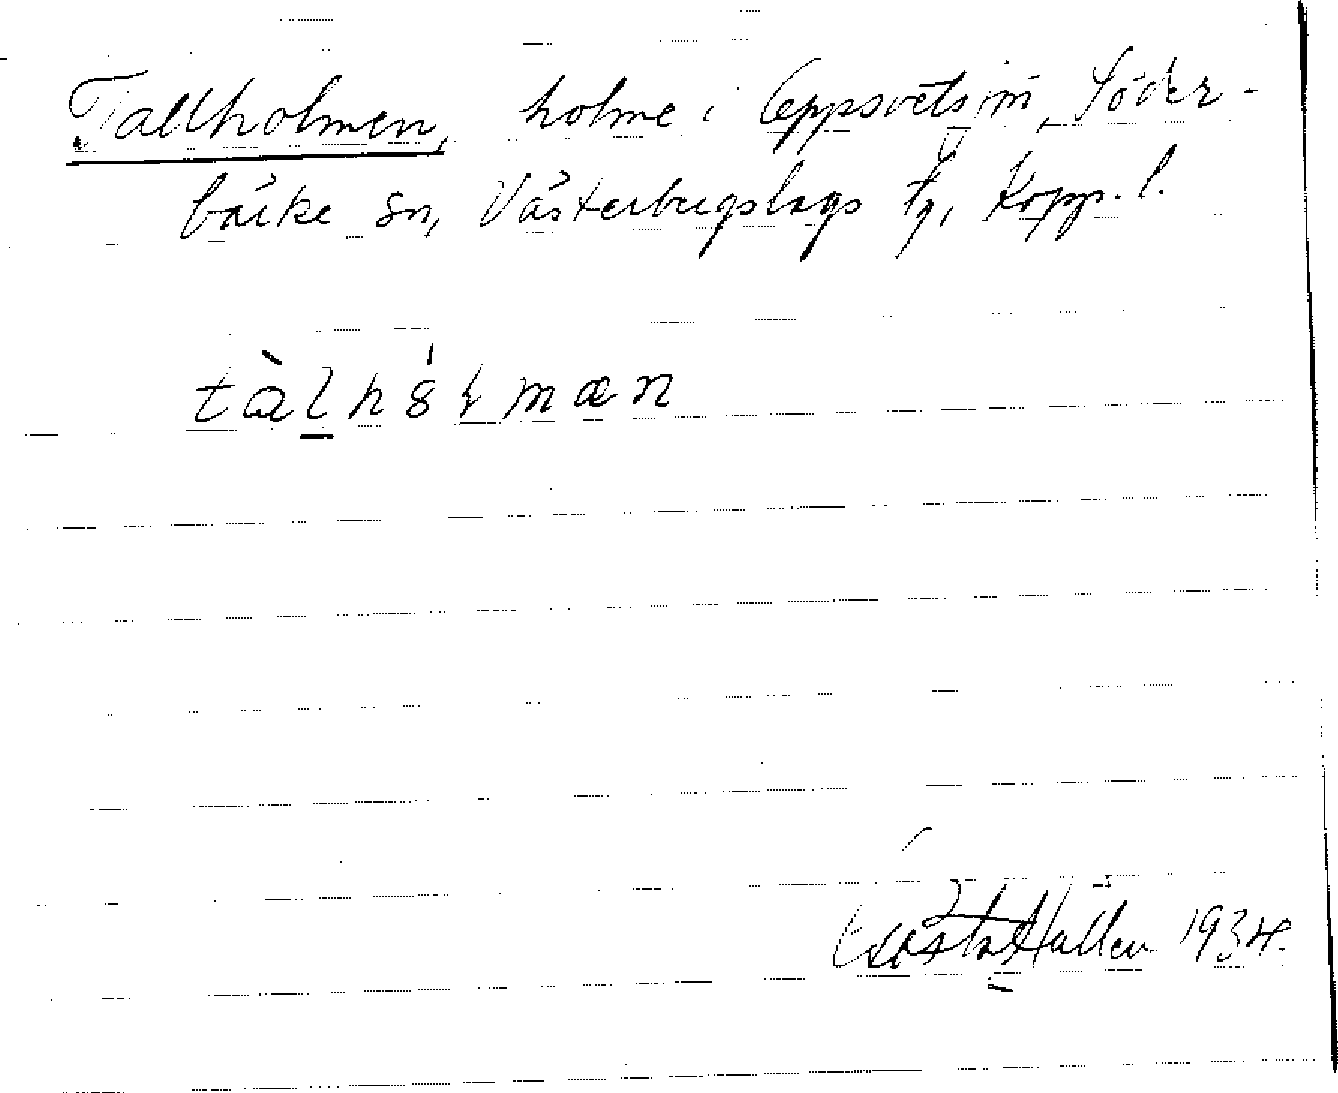 Tallholmen, holme i Leppsvetsjön, Söder-
bärke sn, Västerbergslags tg, Kopp. l.
tàlhólmæn
Gösta Hallén 1934.